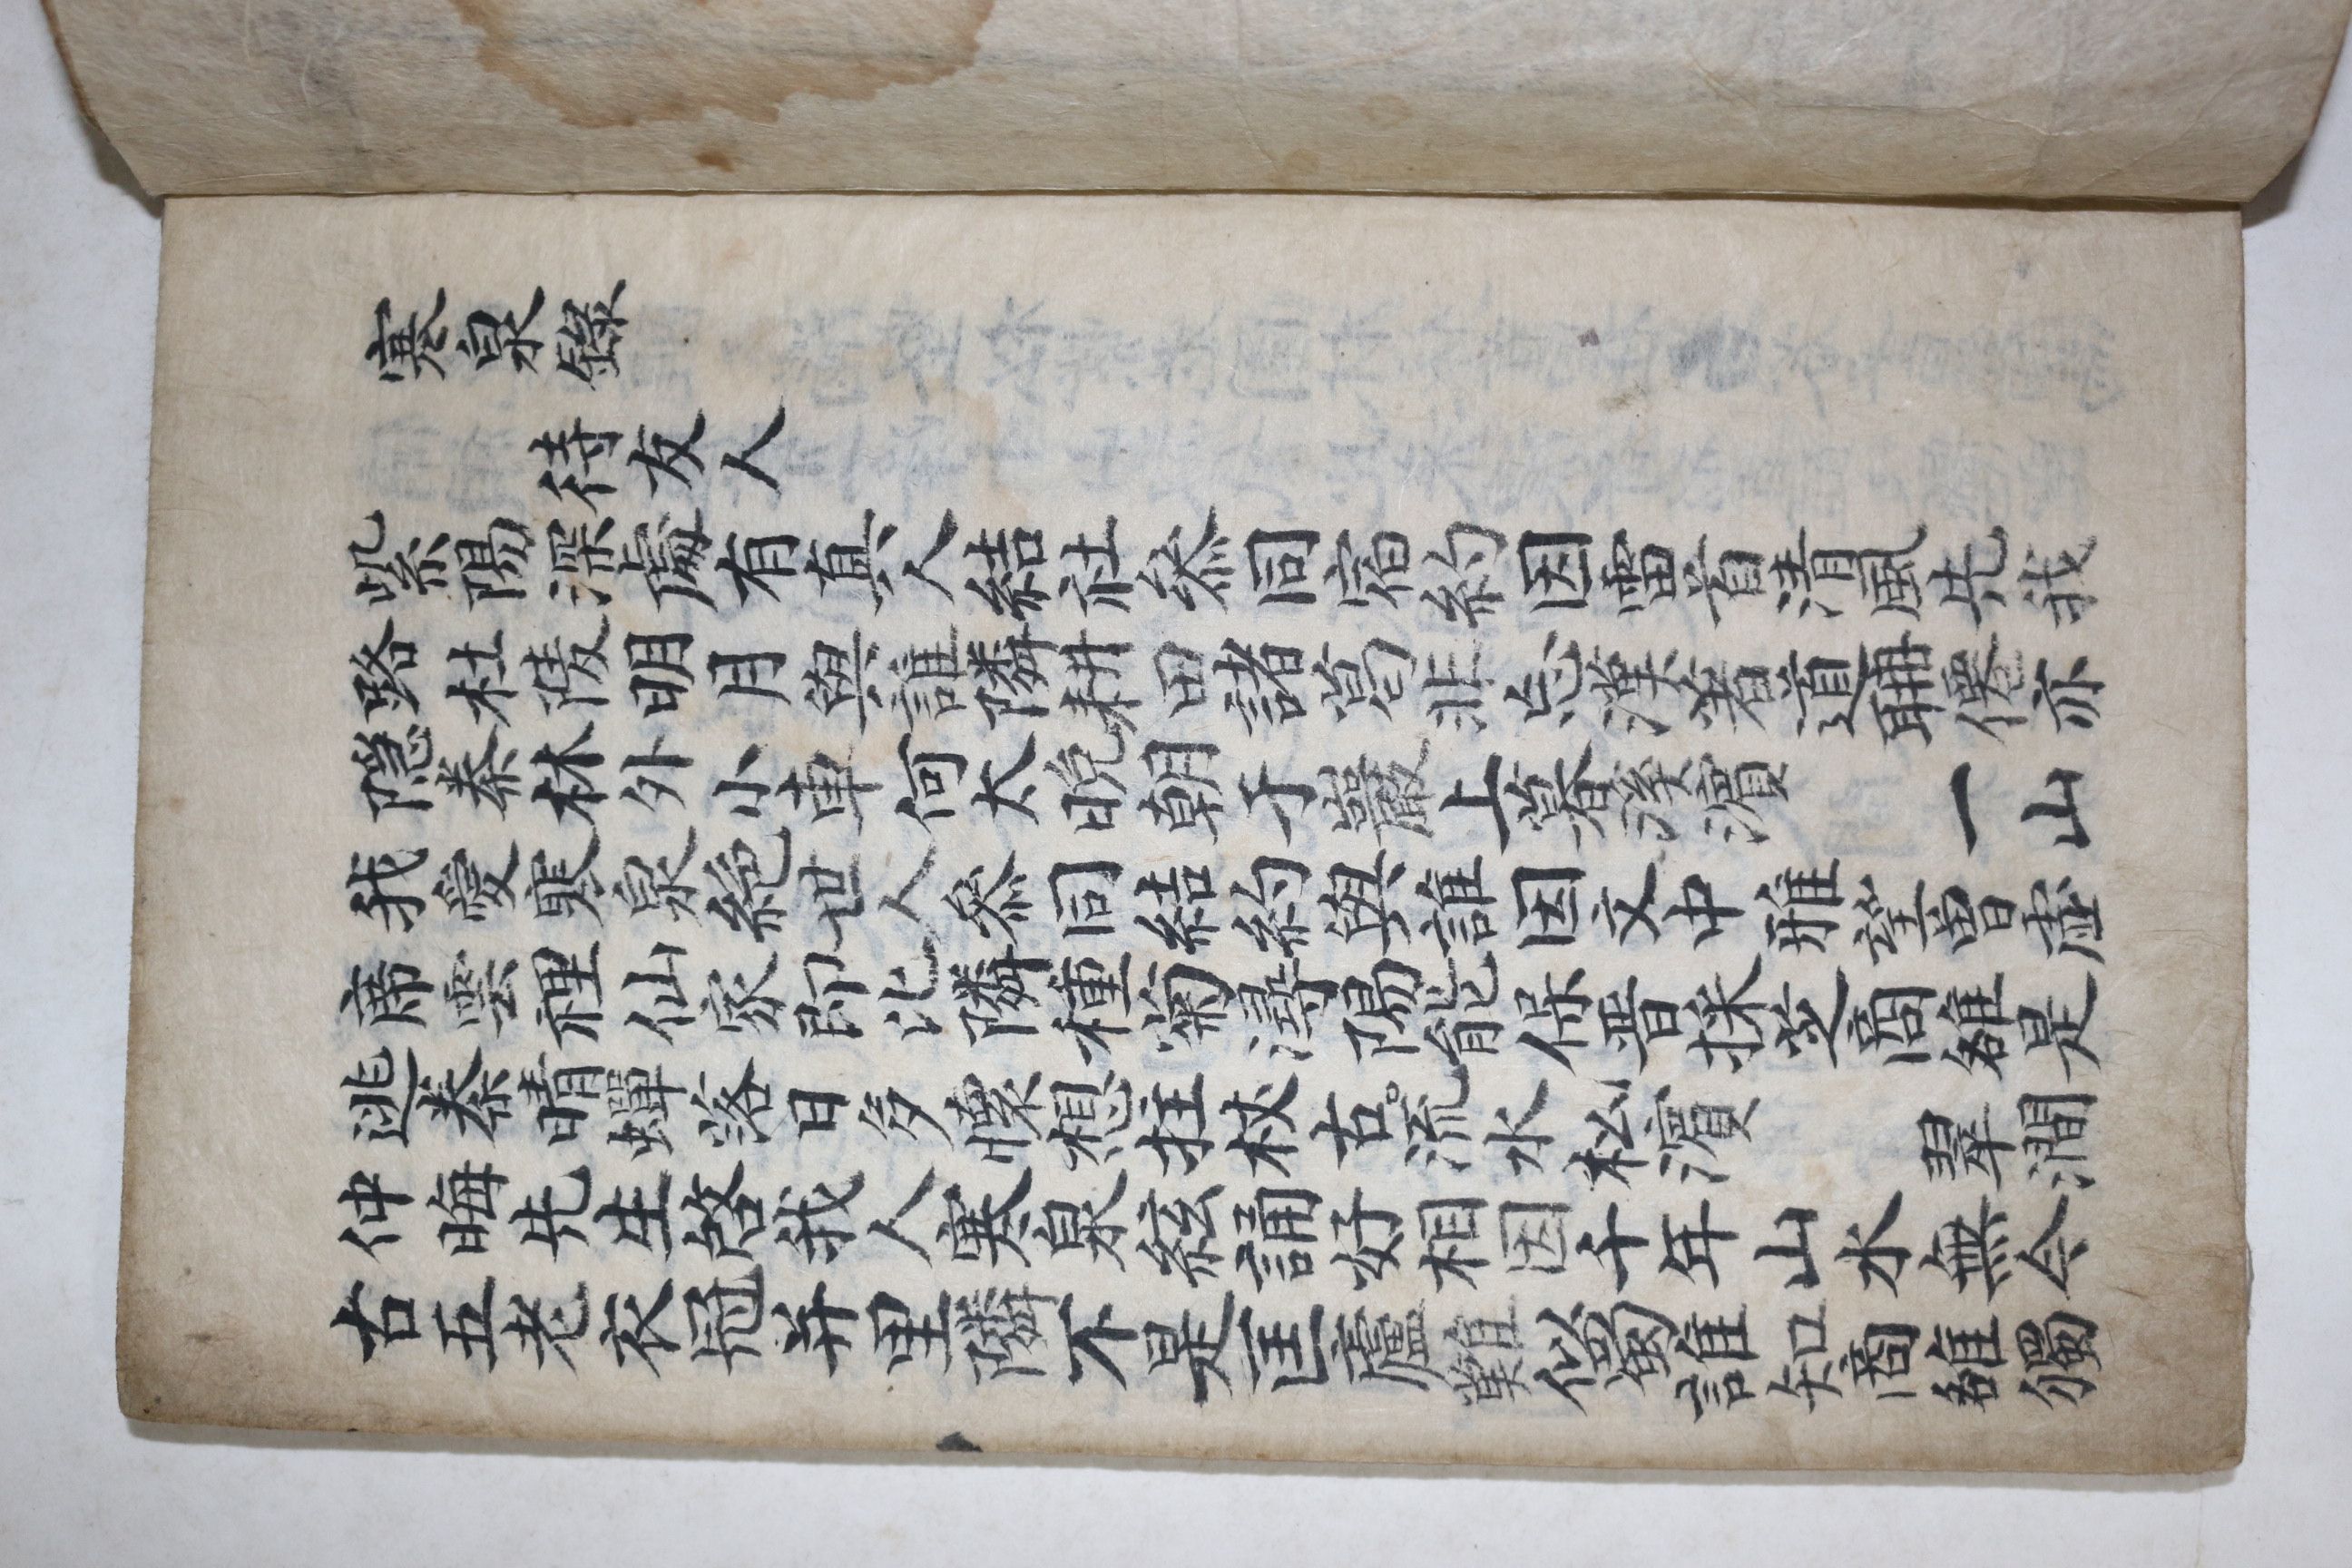 寒泉錄
待友人
紫陽深處有真人結社叅同宿約因雷首清風先我
路杜陵明月與誰隣耕田諸葛非忘漢著道聃僊亦
隠秦林外小車何太晩朝于巖上暮溪濱　一山
我愛寒泉絶世人叅同結約與誰因文中雅望曾虛
席雲裡仙家即比隣種菊潯陽能保晋採芝商雒是
逃秦晴蟬落日多懷想拄杖古。流水松濱　翠澗
仲晦先生啓我人寒泉絃誦好相因千年山水無今
古五老衣冠并里隣不是匡廬難似蜀誰知商雒獨